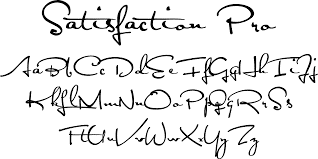 Satisfaction Pro
AaBbCcDdEeFfGgHhIiJj
KkLlMmNnOoPpQqRrSs
TtUuVvWwXxYyZz